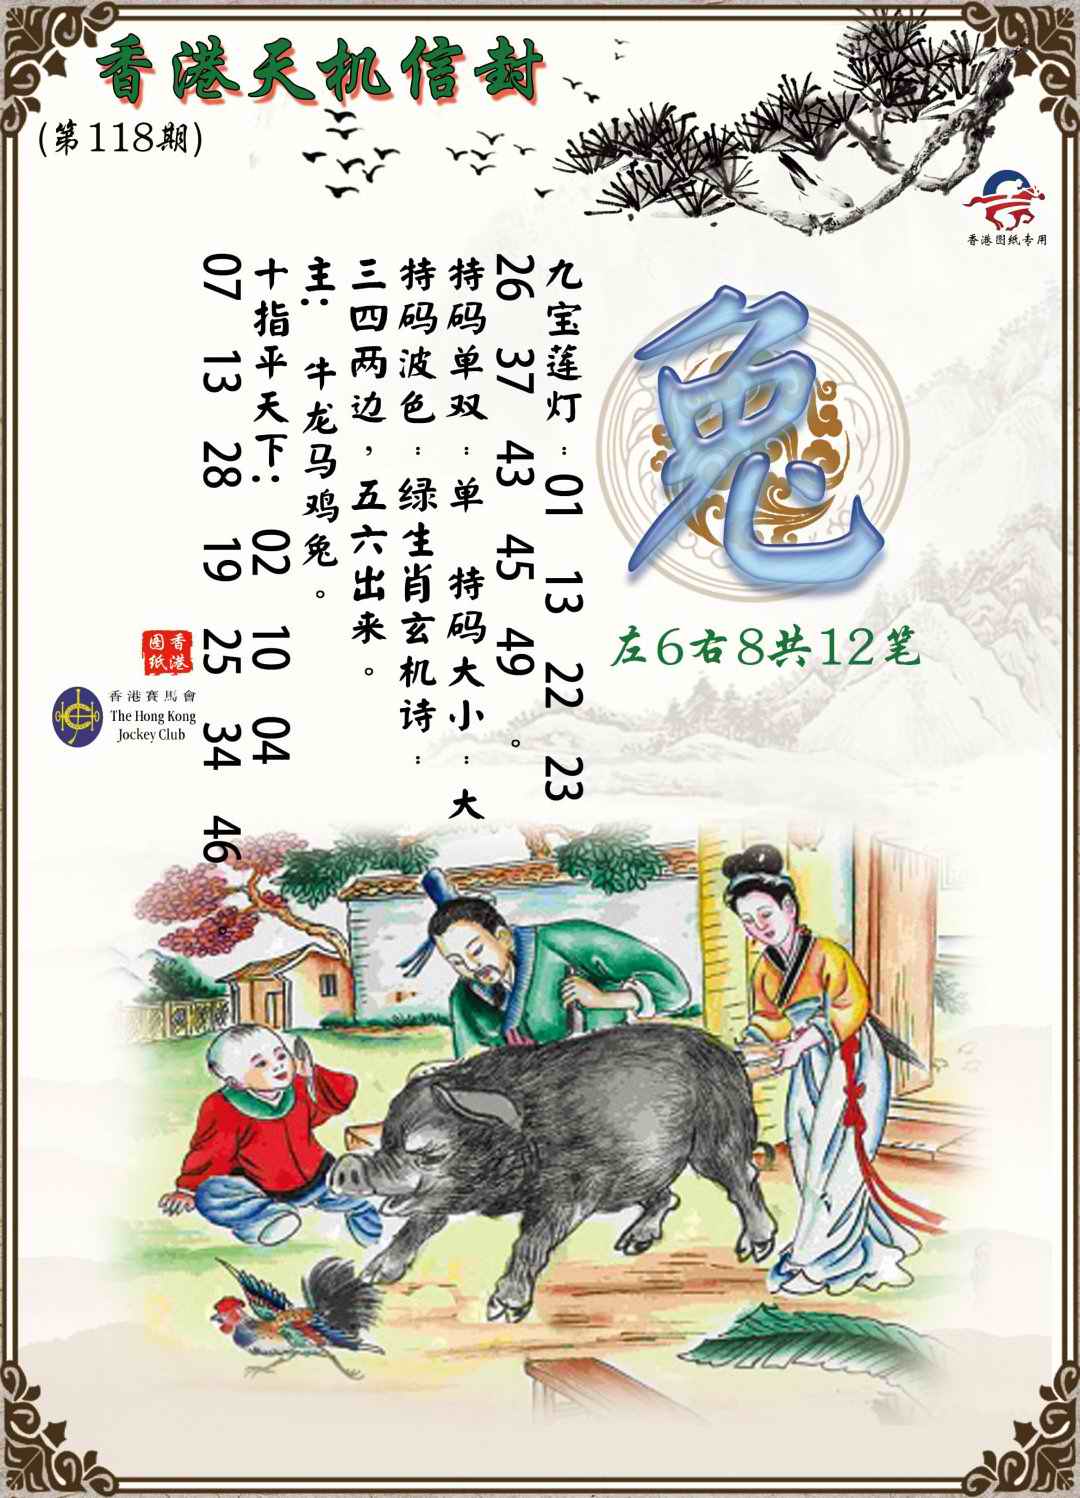 香港天机信封
(第118期)
香港图纸专用
兔
左6右8共12笔
九宝莲灯：01 13 22 23
26 37 43 45 49。
特码单双：单 特码大小：大
特码波色：绿生肖玄机诗：
三四两边，五六出来。
主：牛龙马鸡兔。
十指平天下：02 10 04
07 13 28 19 25 34 46。
香港
图纸
香港賽馬會
The Hong Kong
Jockey Club